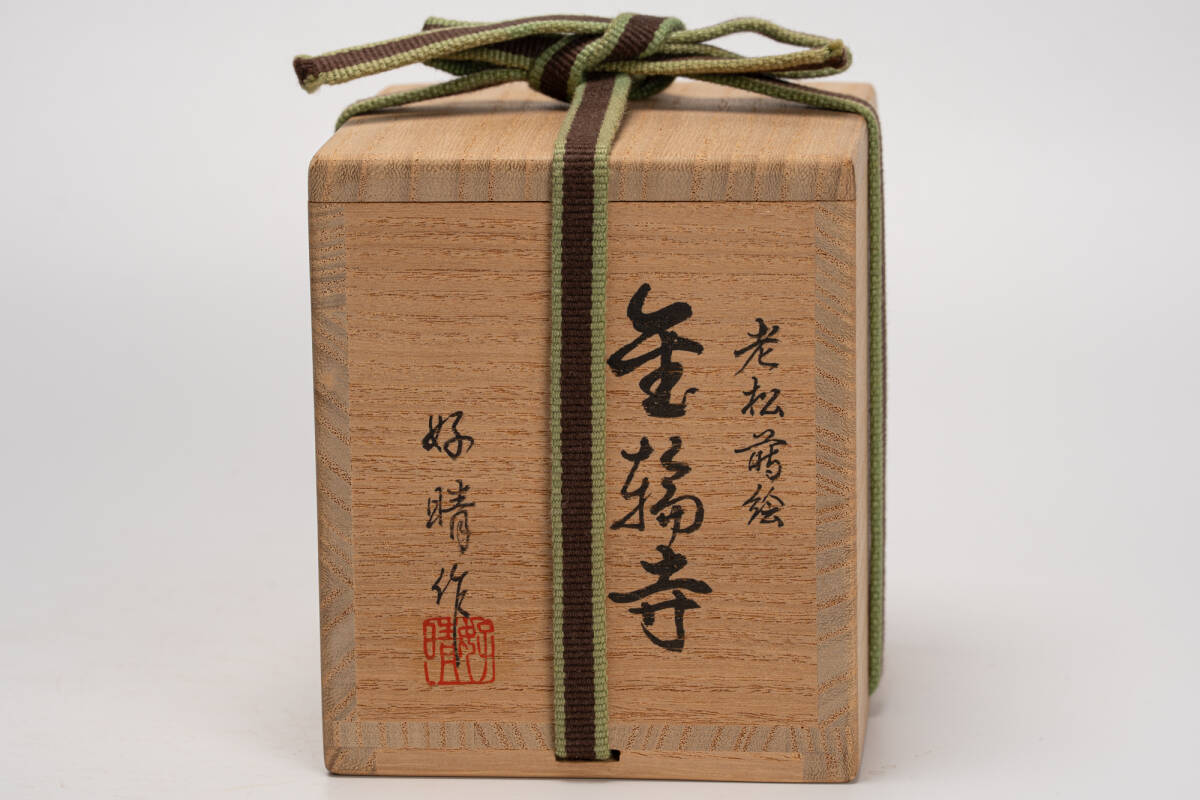 老松蒔絵
金輪寺
好晴作
好晴